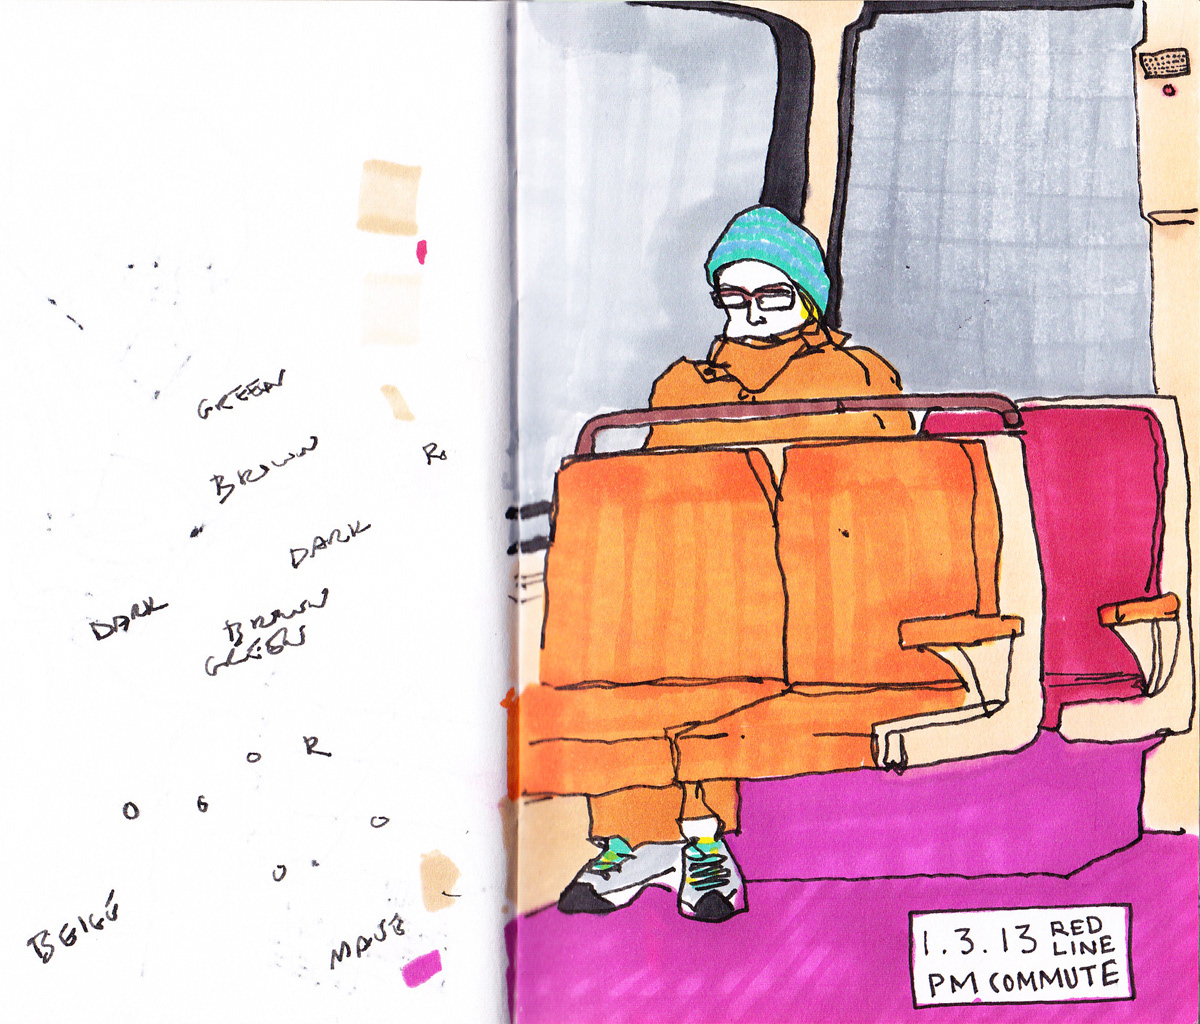 GREEN
BROWN
R
DARK
DARK
BROWN
GREEN
O R
O G
O
O
BEIGE
1.3.13 RED
LINE
PM COMMUTE